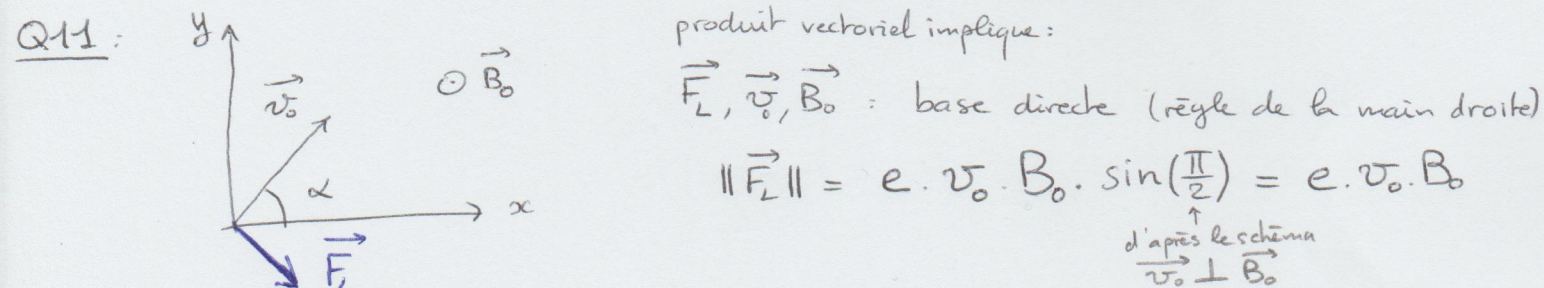 Q11 :
y
v₀
B₀
α
x
F
produit vectoriel implique :
F_L, v₀, B₀ : base directe (règle de la main droite)
||F_L|| = e . v₀ . B₀ . sin(π/2) = e . v₀ . B₀
↑
d'après le schéma
v₀ ⊥ B₀